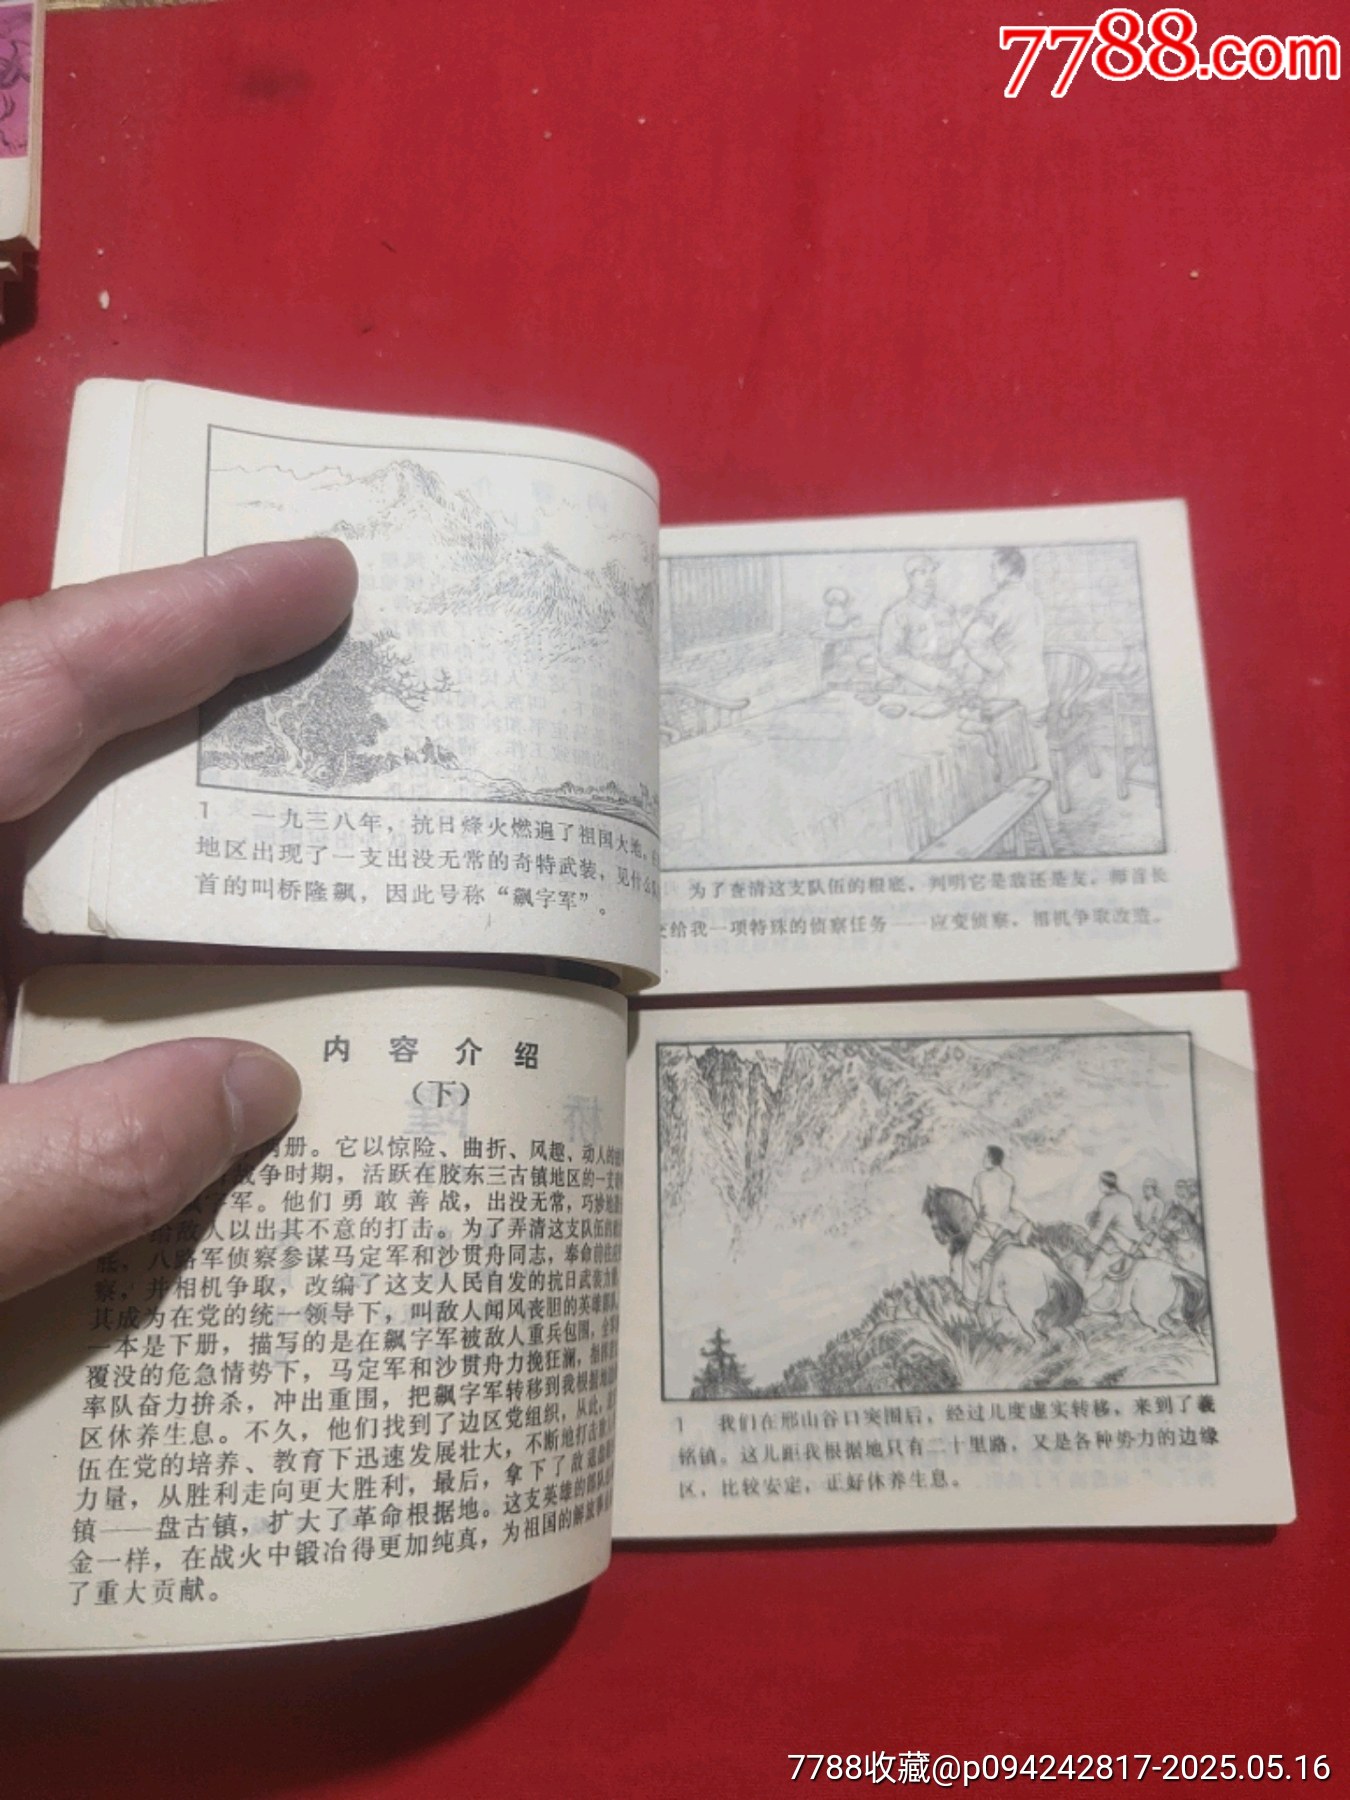 7788.com
1 一九三八年，抗日烽火燃遍了祖国大地，
地区出现了一支出没无常的奇特武装，见什么
首的叫桥隆飙，因此号称“飙字军”。
为了查清这支队伍的根底，判明它是敌还是友，师首长
交给我一项特殊的侦察任务——应变侦察，相机争取改造。
内容介绍
（下）
两册。它以惊险、曲折、风趣、动人的
争时期，活跃在胶东三古镇地区的一支
字军。他们勇敢善战，出没无常，巧妙地
给敌人以出其不意的打击。为了弄清这支队伍的
底，八路军侦察参谋马定军和沙贯舟同志，奉命前往
察，并相机争取，改编了这支人民自发的抗日武装力量，
其成为在党的统一领导下，叫敌人闻风丧胆的英雄部队。
一本是下册，描写的是在飙字军被敌人重兵包围，全军
覆没的危急情势下，马定军和沙贯舟力挽狂澜，指挥
率队奋力拚杀，冲出重围，把飙字军转移到我根据地
区休养生息。不久，他们找到了边区党组织，从此，
伍在党的培养、教育下迅速发展壮大，不断地打击敌人
力量，从胜利走向更大胜利，最后，拿下了敌
镇——盘古镇，扩大了革命根据地。这支英雄的部队
金一样，在战火中锻冶得更加纯真，为祖国的解放事业
了重大贡献。
1 我们在邢山谷口突围后，经过几度虚实转移，来到了羲
铭镇。这儿距我根据地只有二十里路，又是各种势力的边缘
区，比较安定，正好休养生息。
7788收藏@p094242817-2025.05.16